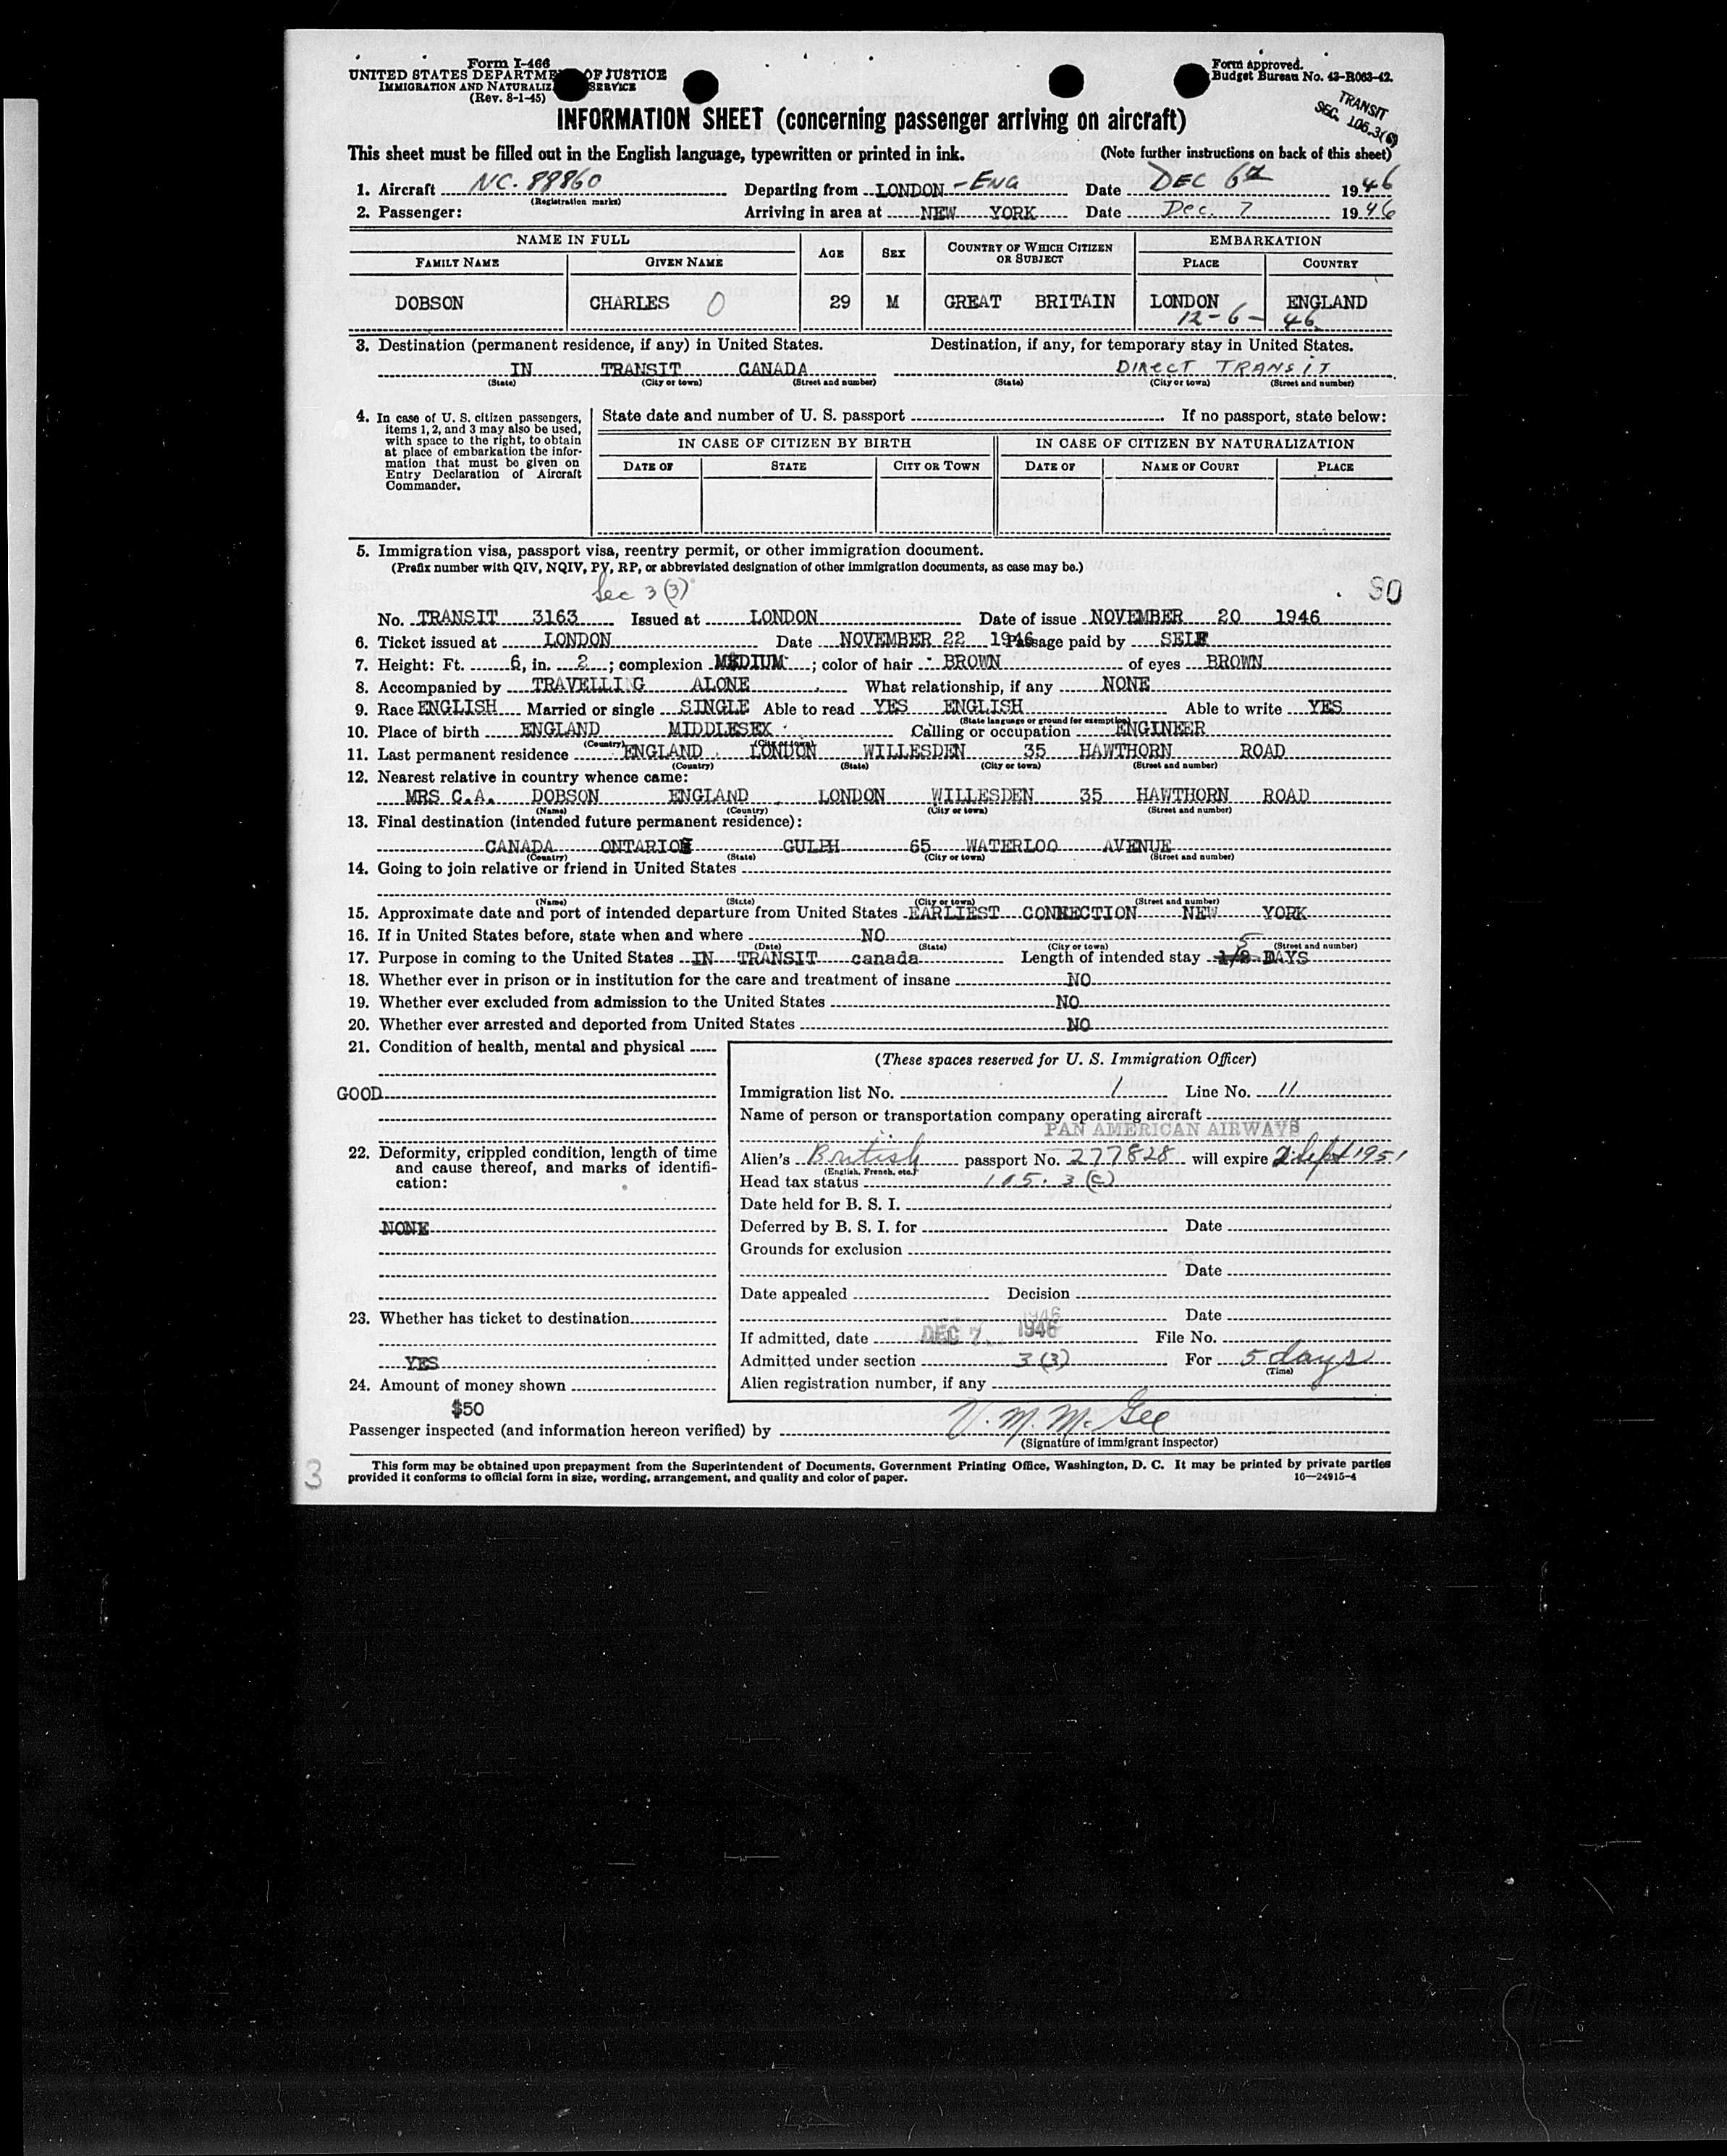 Form I-466
UNITED STATES DEPARTMENT OF JUSTICE
IMMIGRATION AND NATURALIZATION SERVICE
(Rev. 8-1-45)
Form approved.
Budget Bureau No. 43-R063-42.
TRANSIT
SEC. 106.3(6)
INFORMATION SHEET (concerning passenger arriving on aircraft)
This sheet must be filled out in the English language, typewritten or printed in ink. (Note further instructions on back of this sheet)
1. Aircraft NC. 88860 Departing from LONDON - ENG Date DEC 6th 1946
(Registration marks)
2. Passenger: Arriving in area at NEW YORK Date Dec. 7 1946
NAME IN FULL AGE SEX COUNTRY OF WHICH CITIZEN OR SUBJECT EMBARKATION
FAMILY NAME GIVEN NAME PLACE COUNTRY
DOBSON CHARLES O 29 M GREAT BRITAIN LONDON ENGLAND
12-6-46
3. Destination (permanent residence, if any) in United States. Destination, if any, for temporary stay in United States.
IN TRANSIT CANADA DIRECT TRANSIT
(State) (City or town) (Street and number) (State) (City or town) (Street and number)
4. In case of U. S. citizen passengers, items 1, 2, and 3 may also be used, with space to the right, to obtain at place of embarkation the information that must be given on Entry Declaration of Aircraft Commander.
State date and number of U. S. passport If no passport, state below:
IN CASE OF CITIZEN BY BIRTH IN CASE OF CITIZEN BY NATURALIZATION
DATE OF STATE CITY OR TOWN DATE OF NAME OF COURT PLACE
5. Immigration visa, passport visa, reentry permit, or other immigration document.
(Prefix number with QIV, NQIV, PV, RP, or abbreviated designation of other immigration documents, as case may be.)
Sec 3(3) 80
No. TRANSIT 3163 Issued at LONDON Date of issue NOVEMBER 20 1946
6. Ticket issued at LONDON Date NOVEMBER 22 1946 Passage paid by SELF
7. Height: Ft. 6, in. 2; complexion MEDIUM; color of hair BROWN of eyes BROWN
8. Accompanied by TRAVELLING ALONE What relationship, if any NONE
9. Race ENGLISH Married or single SINGLE Able to read YES ENGLISH Able to write YES
(State language or ground for exemption)
10. Place of birth ENGLAND MIDDLESEX Calling or occupation ENGINEER
(Country) (City or town)
11. Last permanent residence ENGLAND LONDON WILLESDEN 35 HAWTHORN ROAD
(Country) (State) (City or town) (Street and number)
12. Nearest relative in country whence came:
MRS C.A. DOBSON ENGLAND LONDON WILLESDEN 35 HAWTHORN ROAD
(Name) (Country) (City or town) (Street and number)
13. Final destination (intended future permanent residence):
CANADA ONTARIO GULPH 65 WATERLOO AVENUE
(Country) (State) (City or town) (Street and number)
14. Going to join relative or friend in United States
(Name) (State) (City or town) (Street and number)
15. Approximate date and port of intended departure from United States EARLIEST CONNECTION NEW YORK
16. If in United States before, state when and where NO
(Date) (State) (City or town) (Street and number)
17. Purpose in coming to the United States IN TRANSIT canada Length of intended stay 1/2 5 DAYS
18. Whether ever in prison or in institution for the care and treatment of insane NO
19. Whether ever excluded from admission to the United States NO
20. Whether ever arrested and deported from United States NO
21. Condition of health, mental and physical
GOOD
22. Deformity, crippled condition, length of time and cause thereof, and marks of identification:
NONE
23. Whether has ticket to destination
YES
24. Amount of money shown
$50
(These spaces reserved for U. S. Immigration Officer)
Immigration list No. 1 Line No. 11
Name of person or transportation company operating aircraft
PAN AMERICAN AIRWAYS
Alien's British passport No. 277828 will expire 2 Sept 1951
(English, French, etc.)
Head tax status 105.3(c)
Date held for B. S. I.
Deferred by B. S. I. for Date
Grounds for exclusion
Date
Date appealed Decision
1946 Date
If admitted, date DEC 7 1946 File No.
Admitted under section 3(3) For 5 days
(Time)
Alien registration number, if any
Passenger inspected (and information hereon verified) by V. M. McGee
(Signature of immigrant inspector)
3
This form may be obtained upon prepayment from the Superintendent of Documents, Government Printing Office, Washington, D. C. It may be printed by private parties
provided it conforms to official form in size, wording, arrangement, and quality and color of paper. 16—24915-4